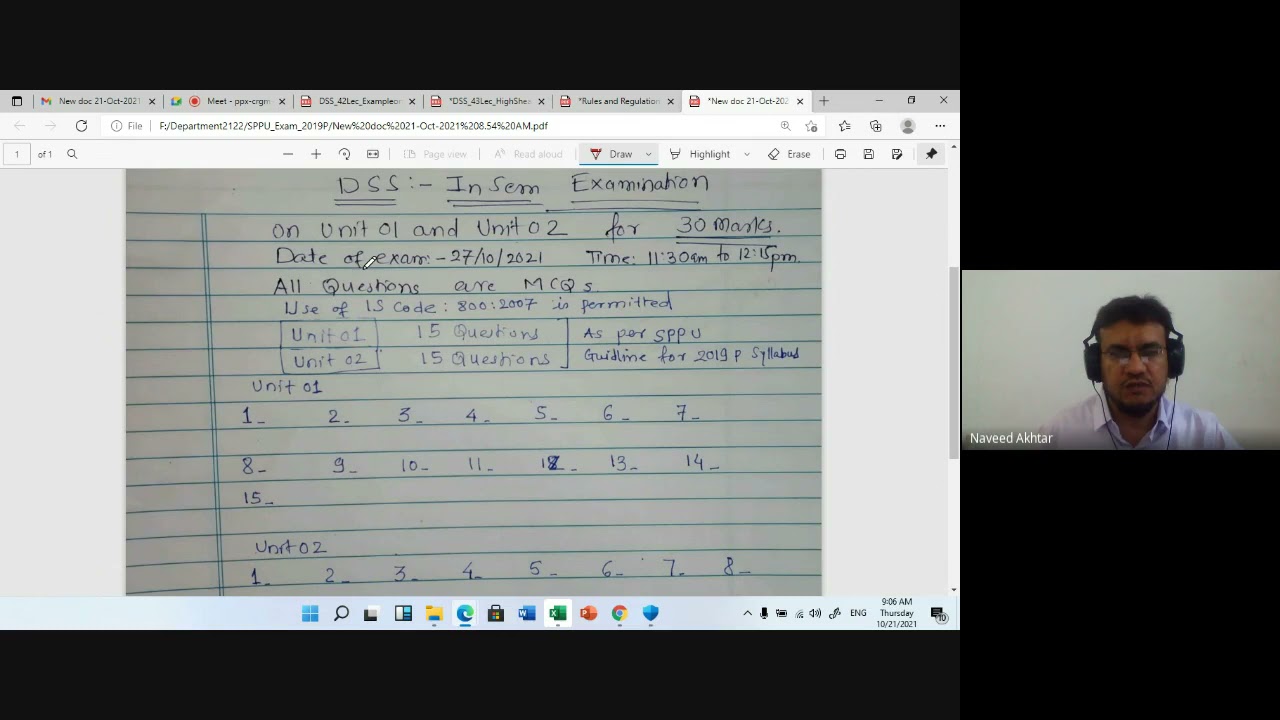 New doc 21-Oct-2021
Meet - ppx-crgm
DSS_42Lec_Exampleon
*DSS_43Lec_HighShea
*Rules and Regulation
*New doc 21-Oct-202
File
F:/Department2122/SPPU_Exam_2019P/New%20doc%2021-Oct-2021%208.54%20AM.pdf
1 of 1
Page view
Read aloud
Draw
Highlight
Erase
DSS:- In Sem Examination
on Unit 01 and Unit 02 for 30 Marks.
Date of exam:- 27/10/2021 Time: 11:30am to 12:15pm.
All Questions are MCQs.
Use of IS Code: 800:2007 is permitted
Unit 01 15 Questions As per SPPU
Unit 02 15 Questions Guidline for 2019 P Syllabus
Unit 01
1- 2- 3- 4- 5- 6- 7-
8- 9- 10- 11- 12- 13- 14-
15-
Unit 02
1- 2- 3- 4- 5- 6- 7- 8-
Naveed Akhtar
ENG
9:06 AM
Thursday
10/21/2021
10